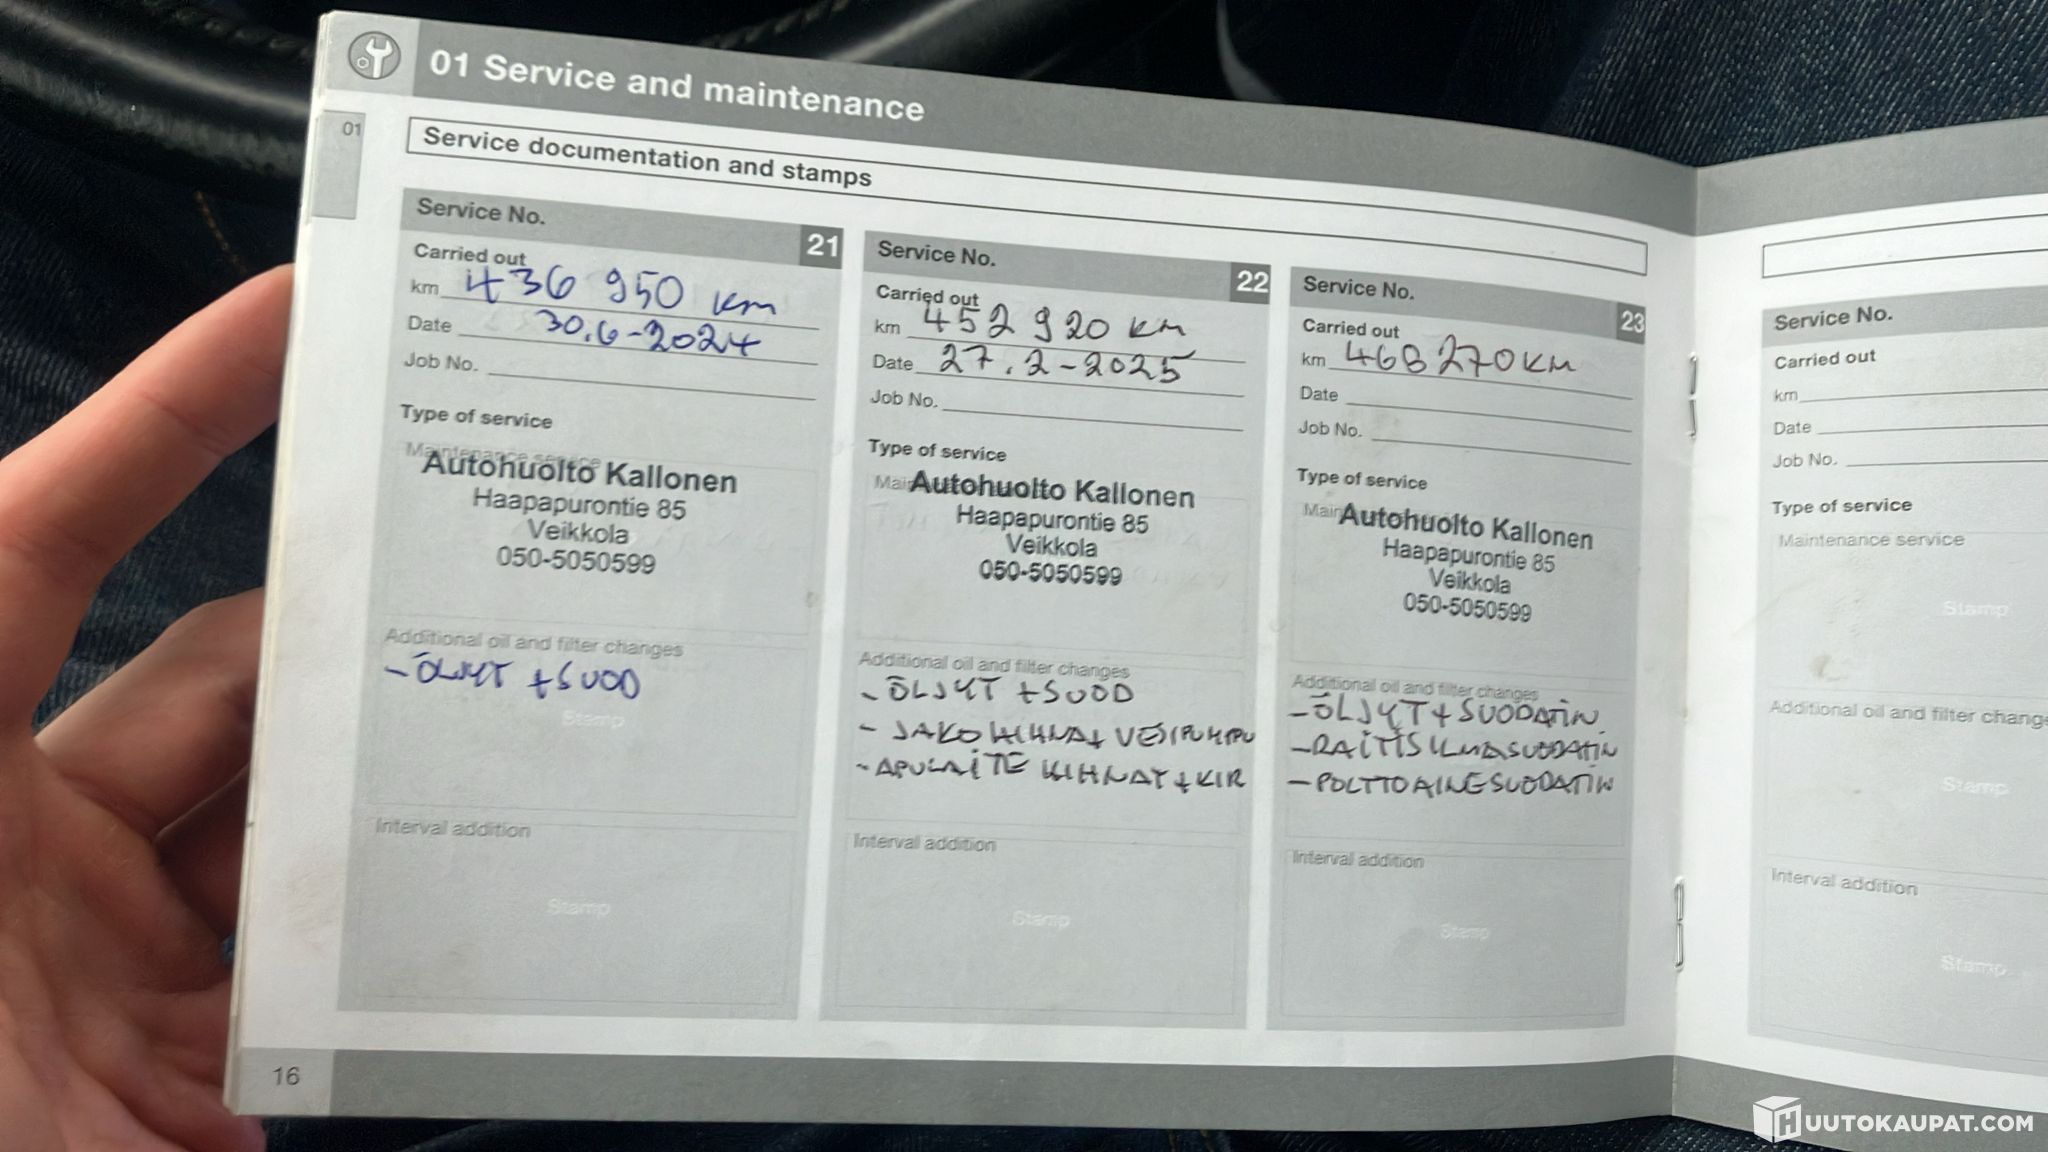 01 Service and maintenance
01
Service documentation and stamps
Service No. 21
Carried out
km 436 950 km
Date 30.6-2024
Job No.
Type of service
Maintenance service
Autohuolto Kallonen
Haapapurontie 85
Veikkola
050-5050599
Additional oil and filter changes
- ÖLJYT + SUOD
Stamp
Interval addition
Stamp
Service No. 22
Carried out
km 452 920 km
Date 27.2-2025
Job No.
Type of service
Autohuolto Kallonen
Haapapurontie 85
Veikkola
050-5050599
Additional oil and filter changes
- ÖLJYT + SUOD
- JAKOHIHNA + VESIPUMPPU
- APULAITE HIHNAT + KIR
Interval addition
Stamp
Service No. 23
Carried out
km 468 270 KM
Date
Job No.
Type of service
Autohuolto Kallonen
Haapapurontie 85
Veikkola
050-5050599
Additional oil and filter changes
- ÖLJYT + SUODATIN
- RAITISILMASUODATIN
- POLTTOAINESUODATIN
Interval addition
Stamp
16
Service No.
Carried out
km
Date
Job No.
Type of service
Maintenance service
Stamp
Additional oil and filter
Stamp
Interval addition
Stamp
HUUTOKAUPAT.COM